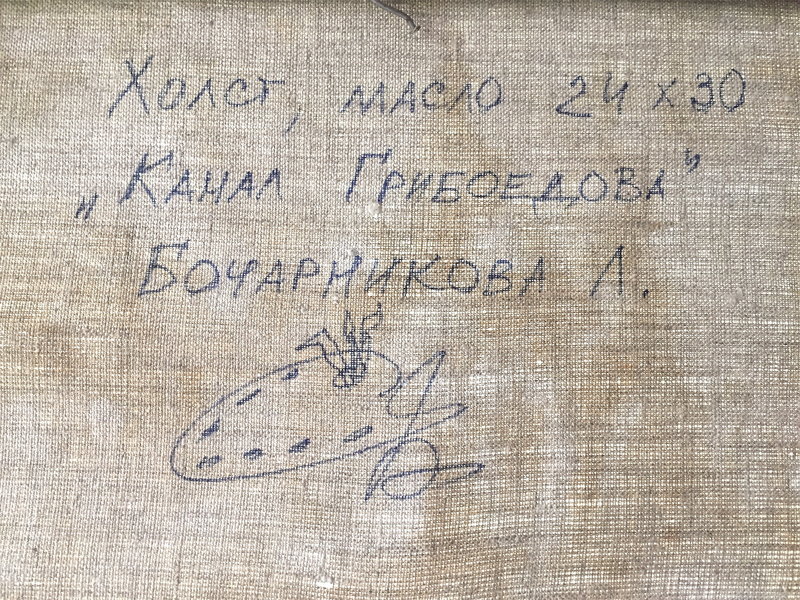 Холст, масло 24 х 30
„Канал Грибоедова”
Бочарникова Л.